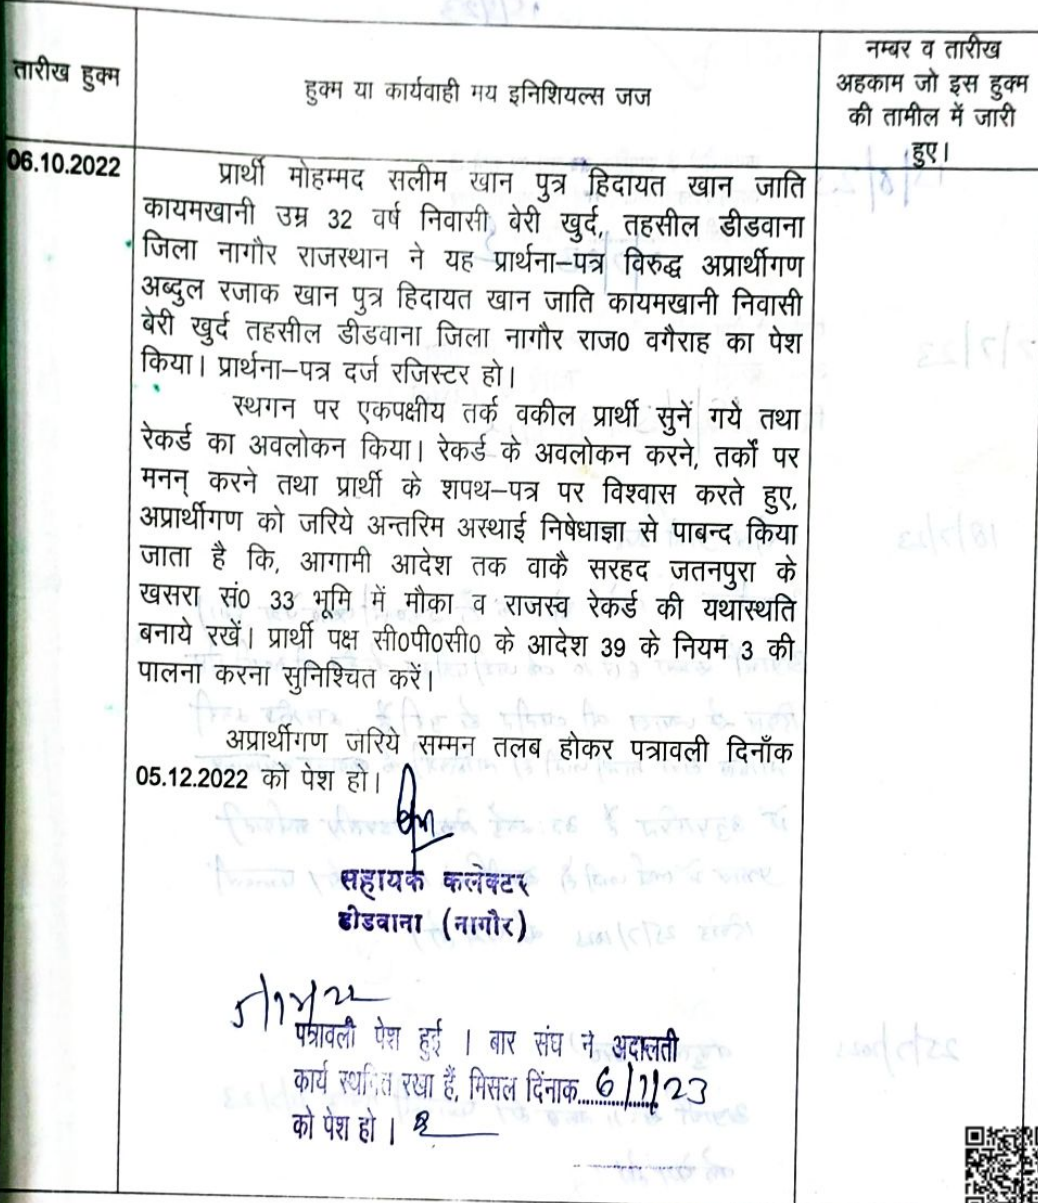 तारीख हुक्म
हुक्म या कार्यवाही मय इनिशियल्स जज
नम्बर व तारीख
अहकाम जो इस हुक्म
की तामील में जारी
हुए।
06.10.2022
प्रार्थी मोहम्मद सलीम खान पुत्र हिदायत खान जाति
कायमखानी उम्र 32 वर्ष निवासी बेरी खुर्द, तहसील डीडवाना
जिला नागौर राजस्थान ने यह प्रार्थना–पत्र विरुद्ध अप्रार्थीगण
अब्दुल रजाक खान पुत्र हिदायत खान जाति कायमखानी निवासी
बेरी खुर्द तहसील डीडवाना जिला नागौर राज0 वगैराह का पेश
किया। प्रार्थना–पत्र दर्ज रजिस्टर हो।
स्थगन पर एकपक्षीय तर्क वकील प्रार्थी सुनें गये तथा
रेकर्ड का अवलोकन किया। रेकर्ड के अवलोकन करने, तर्कों पर
मनन् करने तथा प्रार्थी के शपथ–पत्र पर विश्वास करते हुए,
अप्रार्थीगण को जरिये अन्तरिम अस्थाई निषेधाज्ञा से पाबन्द किया
जाता है कि, आगामी आदेश तक वाकै सरहद जतनपुरा के
खसरा सं0 33 भूमि में मौका व राजस्व रेकर्ड की यथास्थति
बनाये रखें। प्रार्थी पक्ष सी0पी0सी0 के आदेश 39 के नियम 3 की
पालना करना सुनिश्चित करें।
अप्रार्थीगण जरिये सम्मन तलब होकर पत्रावली दिनाँक
05.12.2022 को पेश हो।
सहायक कलेक्टर
डीडवाना (नागौर)
5/12/22
पत्रावली पेश हुई । बार संघ ने अदालती
कार्य स्थगित रखा हैं, मिसल दिंनाक..6/1/23
को पेश हो ।